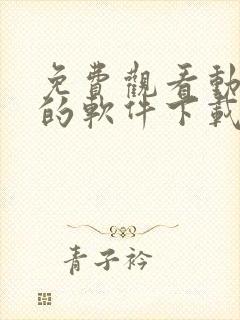 免費觀看動
的軟件下載
青子衿